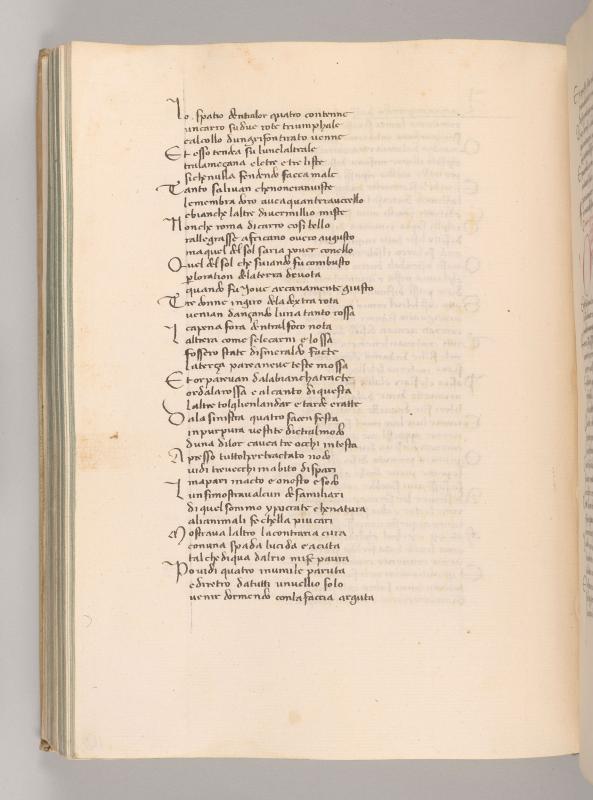 Lo spatio dentralor quatro contenne
un carro su due rote triumphale
calcollo dun grifon tirato venne
Et esso tendea su luna laltrale
tralamezana e letre e tre liste
si che nulla fendendo facea male
Tanto salivan che non eran viste
le membra doro avea quantera ucello
e bianche laltre di vermillio miste
Non che roma di carro cosi bello
rallegrasse africano overo augusto
ma quel del sol saria pover con ello
Quel del sol che sviando fu combusto
per loration dela terra devota
quando fu Jove arcanamente giusto
Tre donne in giro dela dextra rota
venian danzando luna tanto rossa
cha pena fora dentral foco nota
Laltrera come se le carni e lossa
fossero state di smeraldo facte
la terza parea neve teste mossa
Et or parevan dala bianca tracte
or dala rossa e al canto di questa
laltre tolglien landar e tarde e ratte
Dala sinistra quatro facen festa
in purpura vestite dietral modo
duna dilor cavea tre occhi in testa
Apresso tuttol pertractato nodo
vidi tre vecchi in abito dispari
ma pari in acto e onesto e sodo
Lun si mostrava alcun de familiari
di quel sommo ypocrate che natura
ali animali fe chella piu cari
Mostrava laltro la contraria cura
con una spada lucida e acuta
tal che di qua dal rio mi fe paura
Po vidi quatro in umile paruta
e diretro da tutti un vellio solo
venir dormendo con la faccia arguta